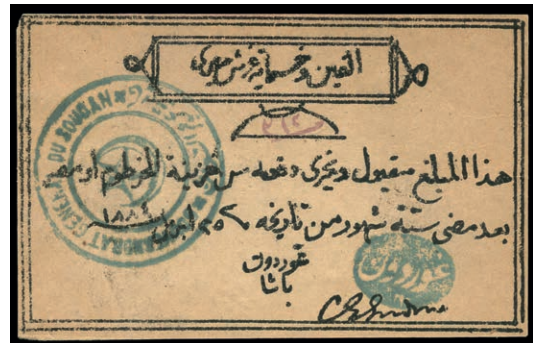 الفين وخمسماية غرش مصرى
هذا المبلغ مقبول ويجرى دفعه من خزينة الخرطوم او مصر
بعد مضى ستة شهور من تاريخه ٢٥ ابريل ١٨٨٤
غوردون
باشا
غوردون
C G Gordon
DU SOUDAN